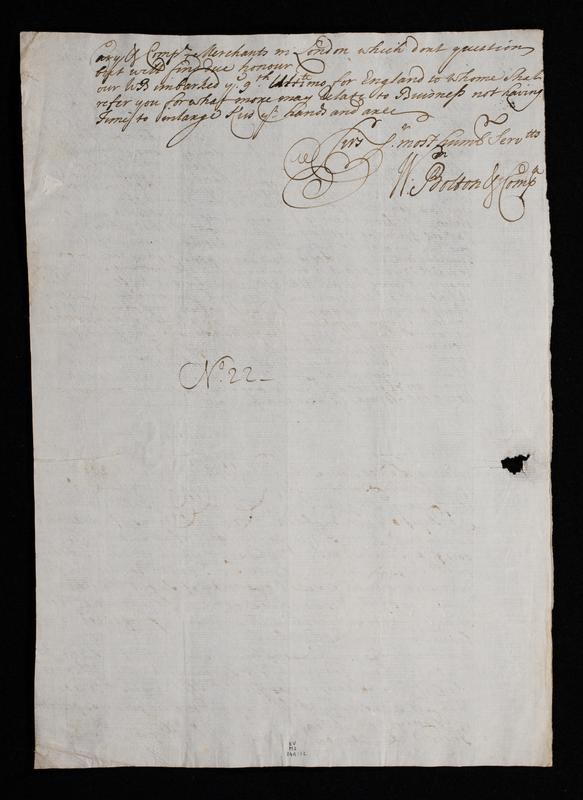 ary & Compa Merchants in London which dont question
but will find due honour
our WB imbarked ye 9th Ultimo for England to whome Shal
refer you for what more may Relate to Buisness not having
Time to enlarge Kis yr hands and are
Sirs Yr most humb Servtts
W: Bolton & Compa
No. 22